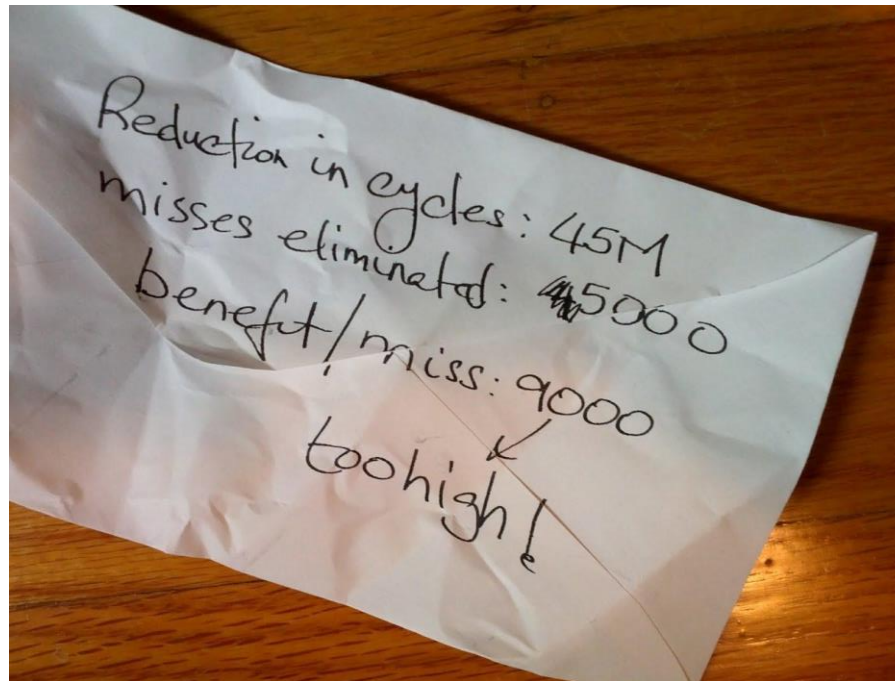 Reduction in cycles: 45M
misses eliminated: 5000
benefit/miss: 9000
too high!